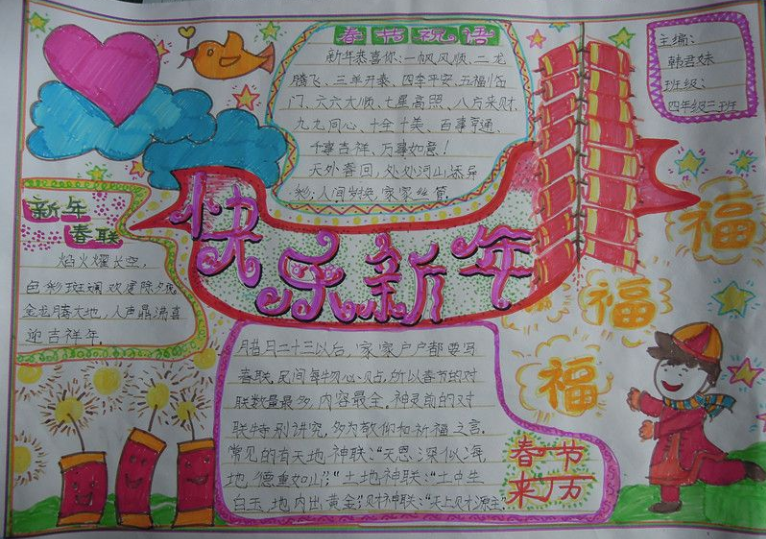 春节祝语
新年恭喜你:一帆风顺、二龙
腾飞、三羊开泰、四季平安、五福临
门、六六大顺、七星高照、八方来财、
九九同心、十全十美、百事亨通、
千事吉祥、万事如意!
天外春回,处处河山添异
彩;人间岁换,家家丝管
主编:
韩君妹
班级:
四年级三班
新年
春联
焰火耀长空,
色彩斑斓欢度除夕夜
金龙腾大地,人声鼎沸喜
迎吉祥年。
快乐新年
福
福
福
腊月二十三以后,家家户户都要写
春联,民间每物必贴,所以春节的对
联数量最多,内容最全。神灵前的对
联特别讲究,多为敬仰和祈福之言。
常见的有天地神联:“天恩深似海,
地德重如山;”土地神联:“土中生
白玉,地内出黄金”财神联:“天上财源主
春节
来历